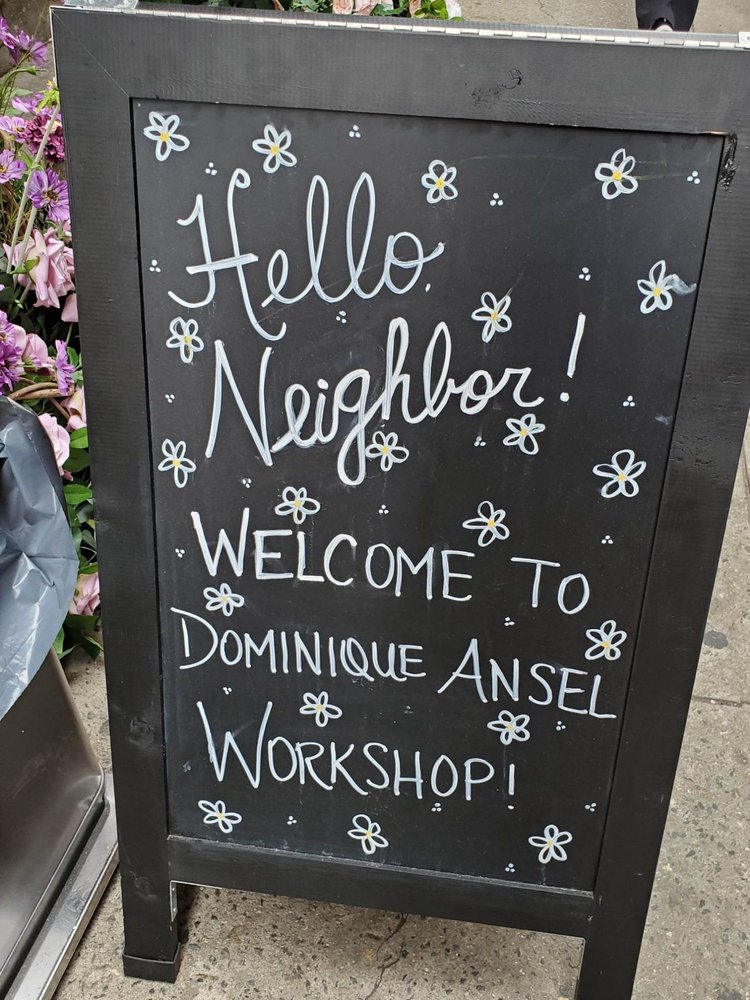 Hello,
Neighbor!
WELCOME TO
DOMINIQUE ANSEL
WORKSHOP!